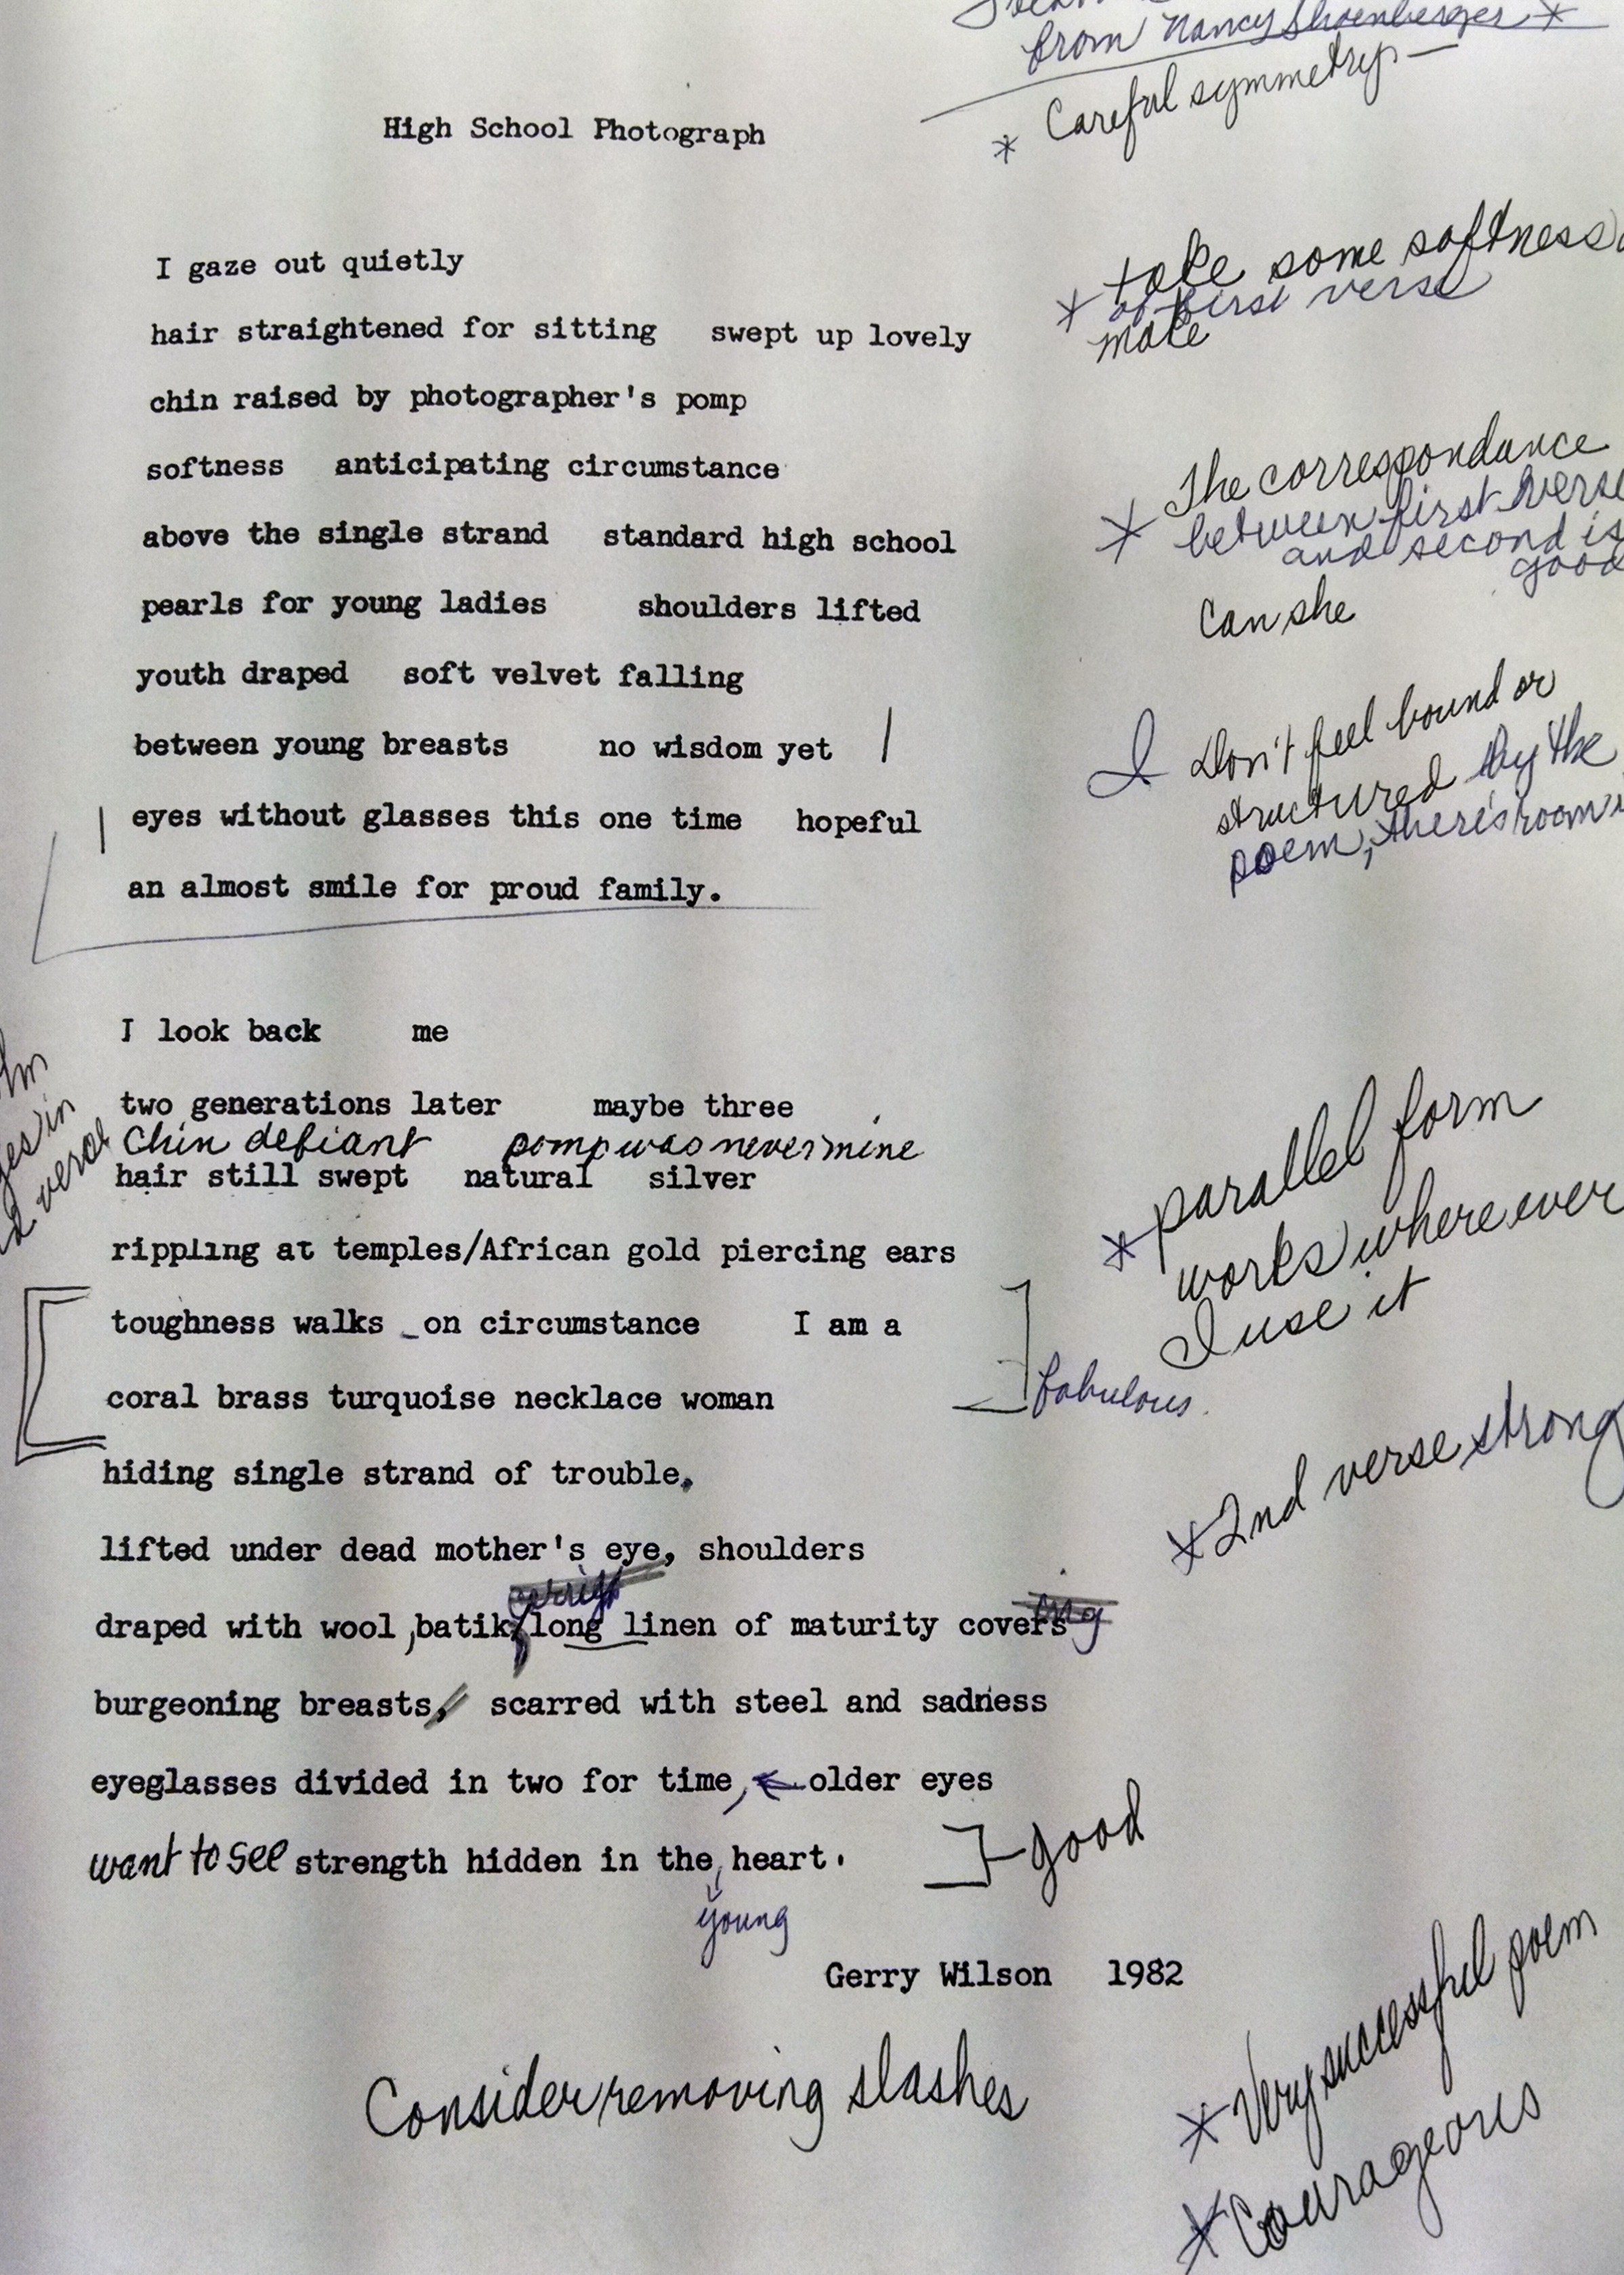 from Nancy Shoenberger *
* Careful symmetry —
High School Photograph
I gaze out quietly
hair straightened for sitting swept up lovely
chin raised by photographer's pomp
softness anticipating circumstance
above the single strand standard high school
pearls for young ladies shoulders lifted
youth draped soft velvet falling
between young breasts no wisdom yet
eyes without glasses this one time hopeful
an almost smile for proud family.
* take some softness
of first verse
make
* The correspondance
between first verse
and second is
good
Can she
I Don't feel bound or
structured by the
poem, there's room
I look back me
two generations later maybe three
Chin defiant pomp was never mine
hair still swept natural silver
rippling at temples/African gold piercing ears
toughness walks on circumstance I am a
coral brass turquoise necklace woman
hiding single strand of trouble,
lifted under dead mother's eye, shoulders
draped with wool, batik, long linen of maturity covers
burgeoning breasts, scarred with steel and sadness
eyeglasses divided in two for time, older eyes
want to see strength hidden in the heart.
young
in
verse
* parallel form
works where ever
I use it
fabulous.
* 2nd verse strong
good
Gerry Wilson 1982
Consider removing slashes
* Very successful poem
* Courageous